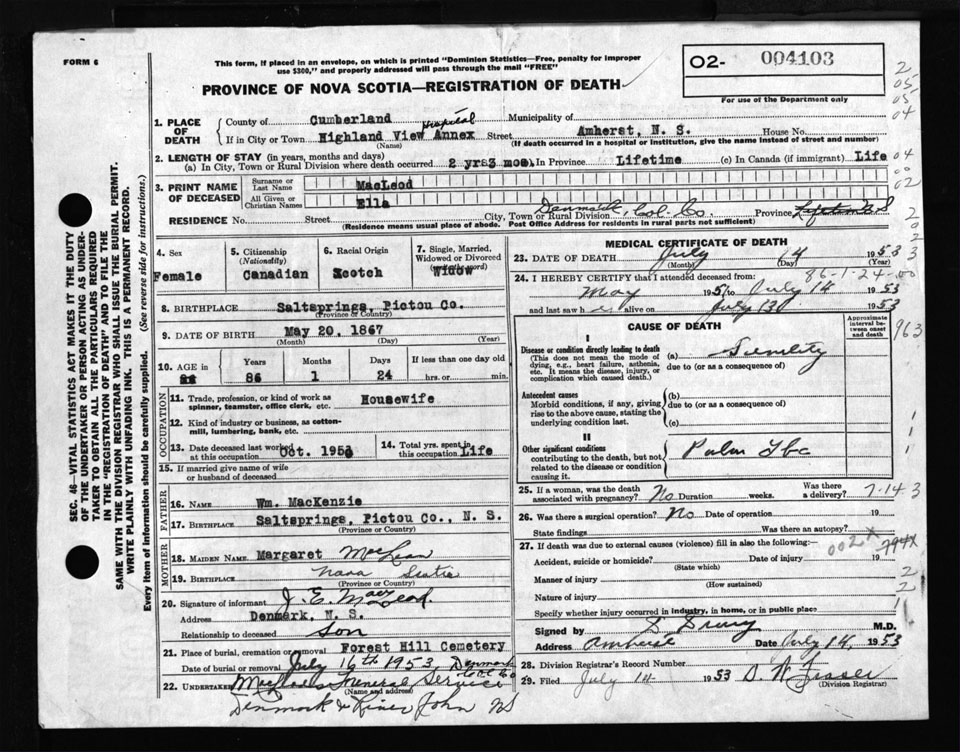 FORM 6
This form, if placed in an envelope, on which is printed "Dominion Statistics—Free, penalty for improper
use $300," and properly addressed will pass through the mail "FREE"
O2- 004103
For use of the Department only
PROVINCE OF NOVA SCOTIA—REGISTRATION OF DEATH
SEC. 46—VITAL STATISTICS ACT MAKES IT THE DUTY
OF THE UNDERTAKER OR PERSON ACTING AS UNDER-
TAKER TO OBTAIN ALL THE PARTICULARS REQUIRED
IN THE "REGISTRATION OF DEATH" AND TO FILE THE
SAME WITH THE DIVISION REGISTRAR WHO SHALL ISSUE THE BURIAL PERMIT.
WRITE PLAINLY WITH UNFADING INK. THIS IS A PERMANENT RECORD.
Every item of information should be carefully supplied. (See reverse side for instructions.)
1. PLACE OF DEATH
County of Cumberland Municipality of
If in City or Town Highland View Hospital Annex Street Amherst, N. S. House No.
(Name) (If death occurred in a hospital or institution, give the name instead of street and number)
2. LENGTH OF STAY (in years, months and days)
(a) In City, Town or Rural Division where death occurred 2 yrs 3 mos. In Province Lifetime (c) In Canada (if immigrant) Life
3. PRINT NAME OF DECEASED
Surname or Last Name MacLeod
All Given or Christian Names Ella
RESIDENCE No. Street City, Town or Rural Division Denmark, Col. Co Province N S
(Residence means usual place of abode. Post Office Address for residents in rural parts not sufficient)
4. Sex
Female
5. Citizenship
(Nationality)
Canadian
6. Racial Origin
Scotch
7. Single, Married, Widowed or Divorced
Widow
8. BIRTHPLACE Saltsprings, Pictou Co.
(Province or Country)
9. DATE OF BIRTH May 20, 1867
(Month) (Day) (Year)
10. AGE in
Years 86
Months 1
Days 24
If less than one day old
hrs. or min.
OCCUPATION
11. Trade, profession, or kind of work as spinner, teamster, office clerk, etc. Housewife
12. Kind of industry or business, as cotton-mill, lumbering, bank, etc.
13. Date deceased last worked at this occupation Oct. 1953
14. Total yrs. spent in this occupation Life
15. If married give name of wife or husband of deceased
FATHER
16. NAME Wm. MacKenzie
17. BIRTHPLACE Saltsprings, Pictou Co., N. S.
(Province or Country)
MOTHER
18. MAIDEN NAME Margaret MacLean
19. BIRTHPLACE Nova Scotia
(Province or Country)
20. Signature of informant J. E. MacLeod
Address Denmark, N. S.
Relationship to deceased Son
21. Place of burial, cremation or removal Forest Hill Cemetery
Date of burial or removal July 16th 1953, Denmark
Col Co
22. Undertaker Funeral Service
(Name and address)
Denmark & River John NS
MEDICAL CERTIFICATE OF DEATH
23. DATE OF DEATH July 14 1953
(Month) (Day) (Year)
86-1-24-00
24. I HEREBY CERTIFY that I attended deceased from:
May 1951 to July 14 1953
and last saw her alive on July 13 1953
CAUSE OF DEATH
Approximate interval between onset and death
I
Disease or condition directly leading to death
(This does not mean the mode of dying, e.g., heart failure, asthenia, etc. It means the disease, injury, or complication which caused death.)
(a) Senility
due to (or as a consequence of)
Antecedent causes
Morbid conditions, if any, giving rise to the above cause, stating the underlying condition last.
(b)
due to (or as a consequence of)
(c)
II
Other significant conditions
contributing to the death, but not related to the disease or condition causing it.
Pulm Tbc
25. If a woman, was the death associated with pregnancy? No Duration weeks. Was there a delivery?
7-14 3
26. Was there a surgical operation? No Date of operation 19
State findings Was there an autopsy?
002x
27. If death was due to external causes (violence) fill in also the following:
Accident, suicide or homicide? Date of injury 19
794x
(State which)
Manner of injury
(How sustained)
Nature of injury
Specify whether injury occurred in industry, in home, or in public place
Signed by M.D.
Address Amherst Date July 14, 1953
28. Division Registrar's Record Number
29. Filed July 14 1953
(Division Registrar)
2
05
05
04
04
00
02
2
02
3
963
1
1
1
2
2